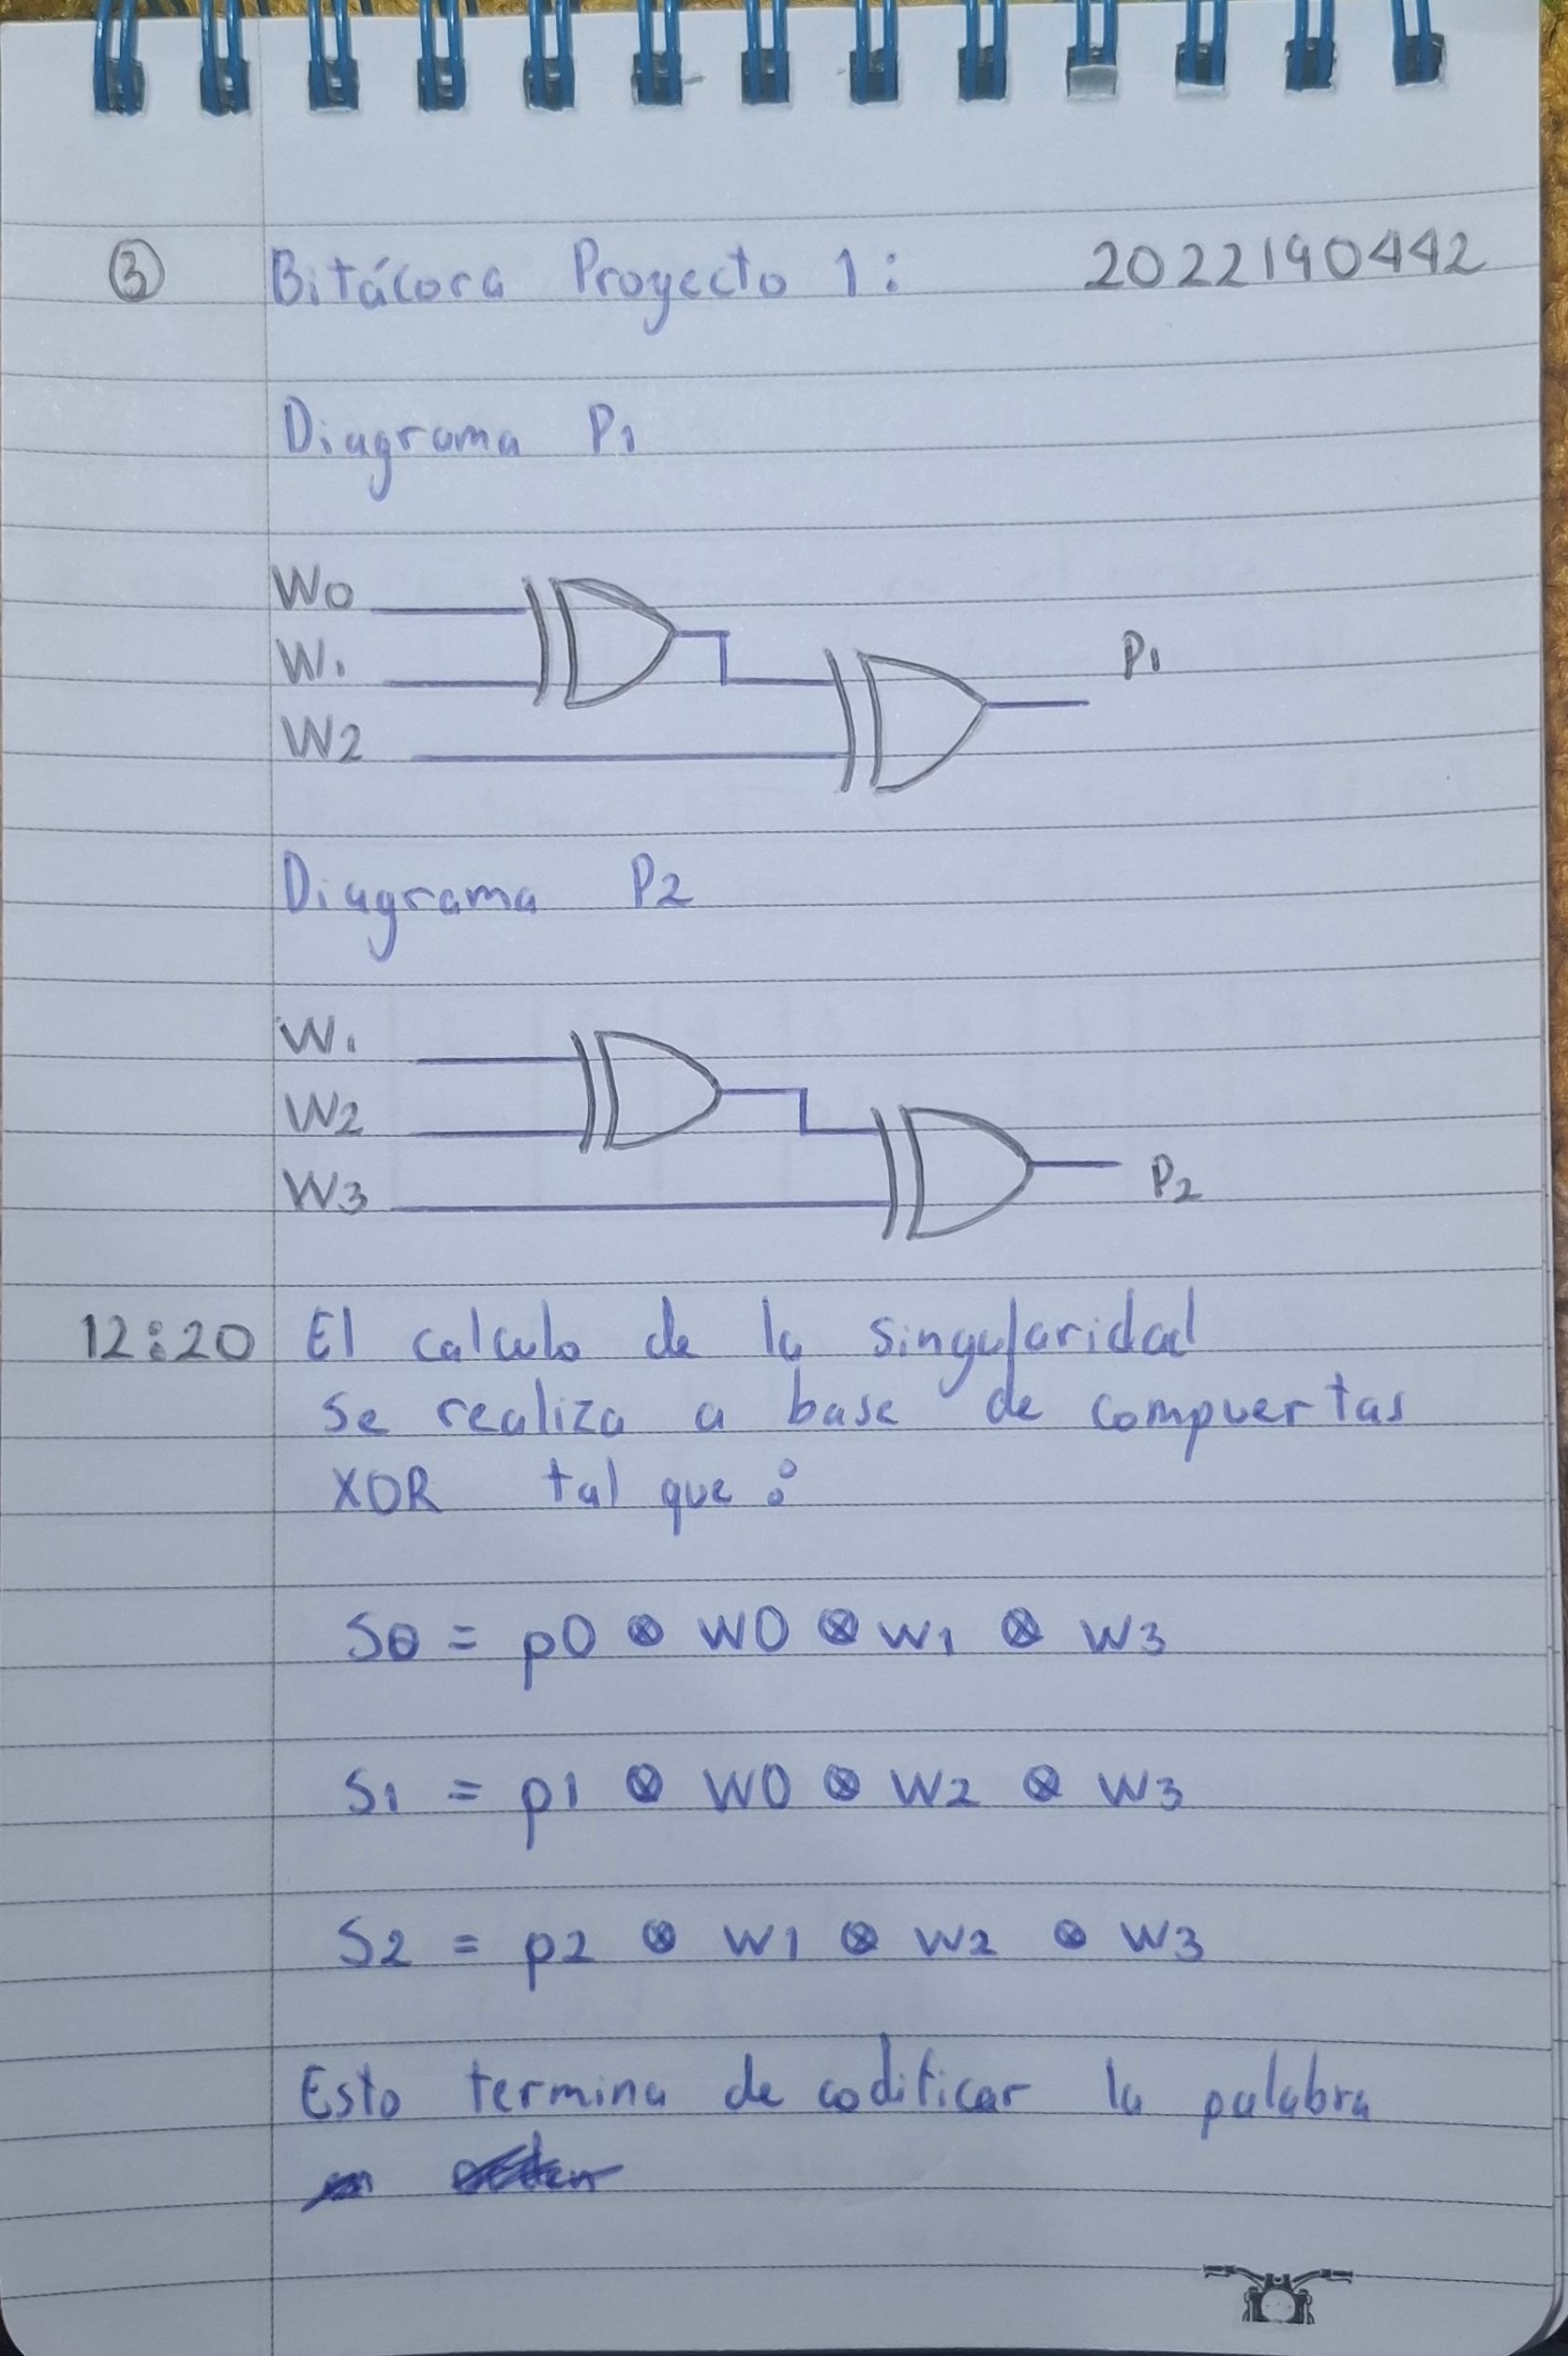 ③ Bitácora Proyecto 1: 2022190442
Diagrama P1
W0
W1
P1
W2
Diagrama P2
W1
W2
W3
P2
12:20 El calculo de la singularidad
se realiza a base de compuertas
XOR tal que:
S0 = p0 ⊗ W0 ⊗ W1 ⊗ W3
S1 = p1 ⊗ W0 ⊗ W2 ⊗ W3
S2 = p2 ⊗ W1 ⊗ W2 ⊗ W3
Esto termina de codificar la palabra